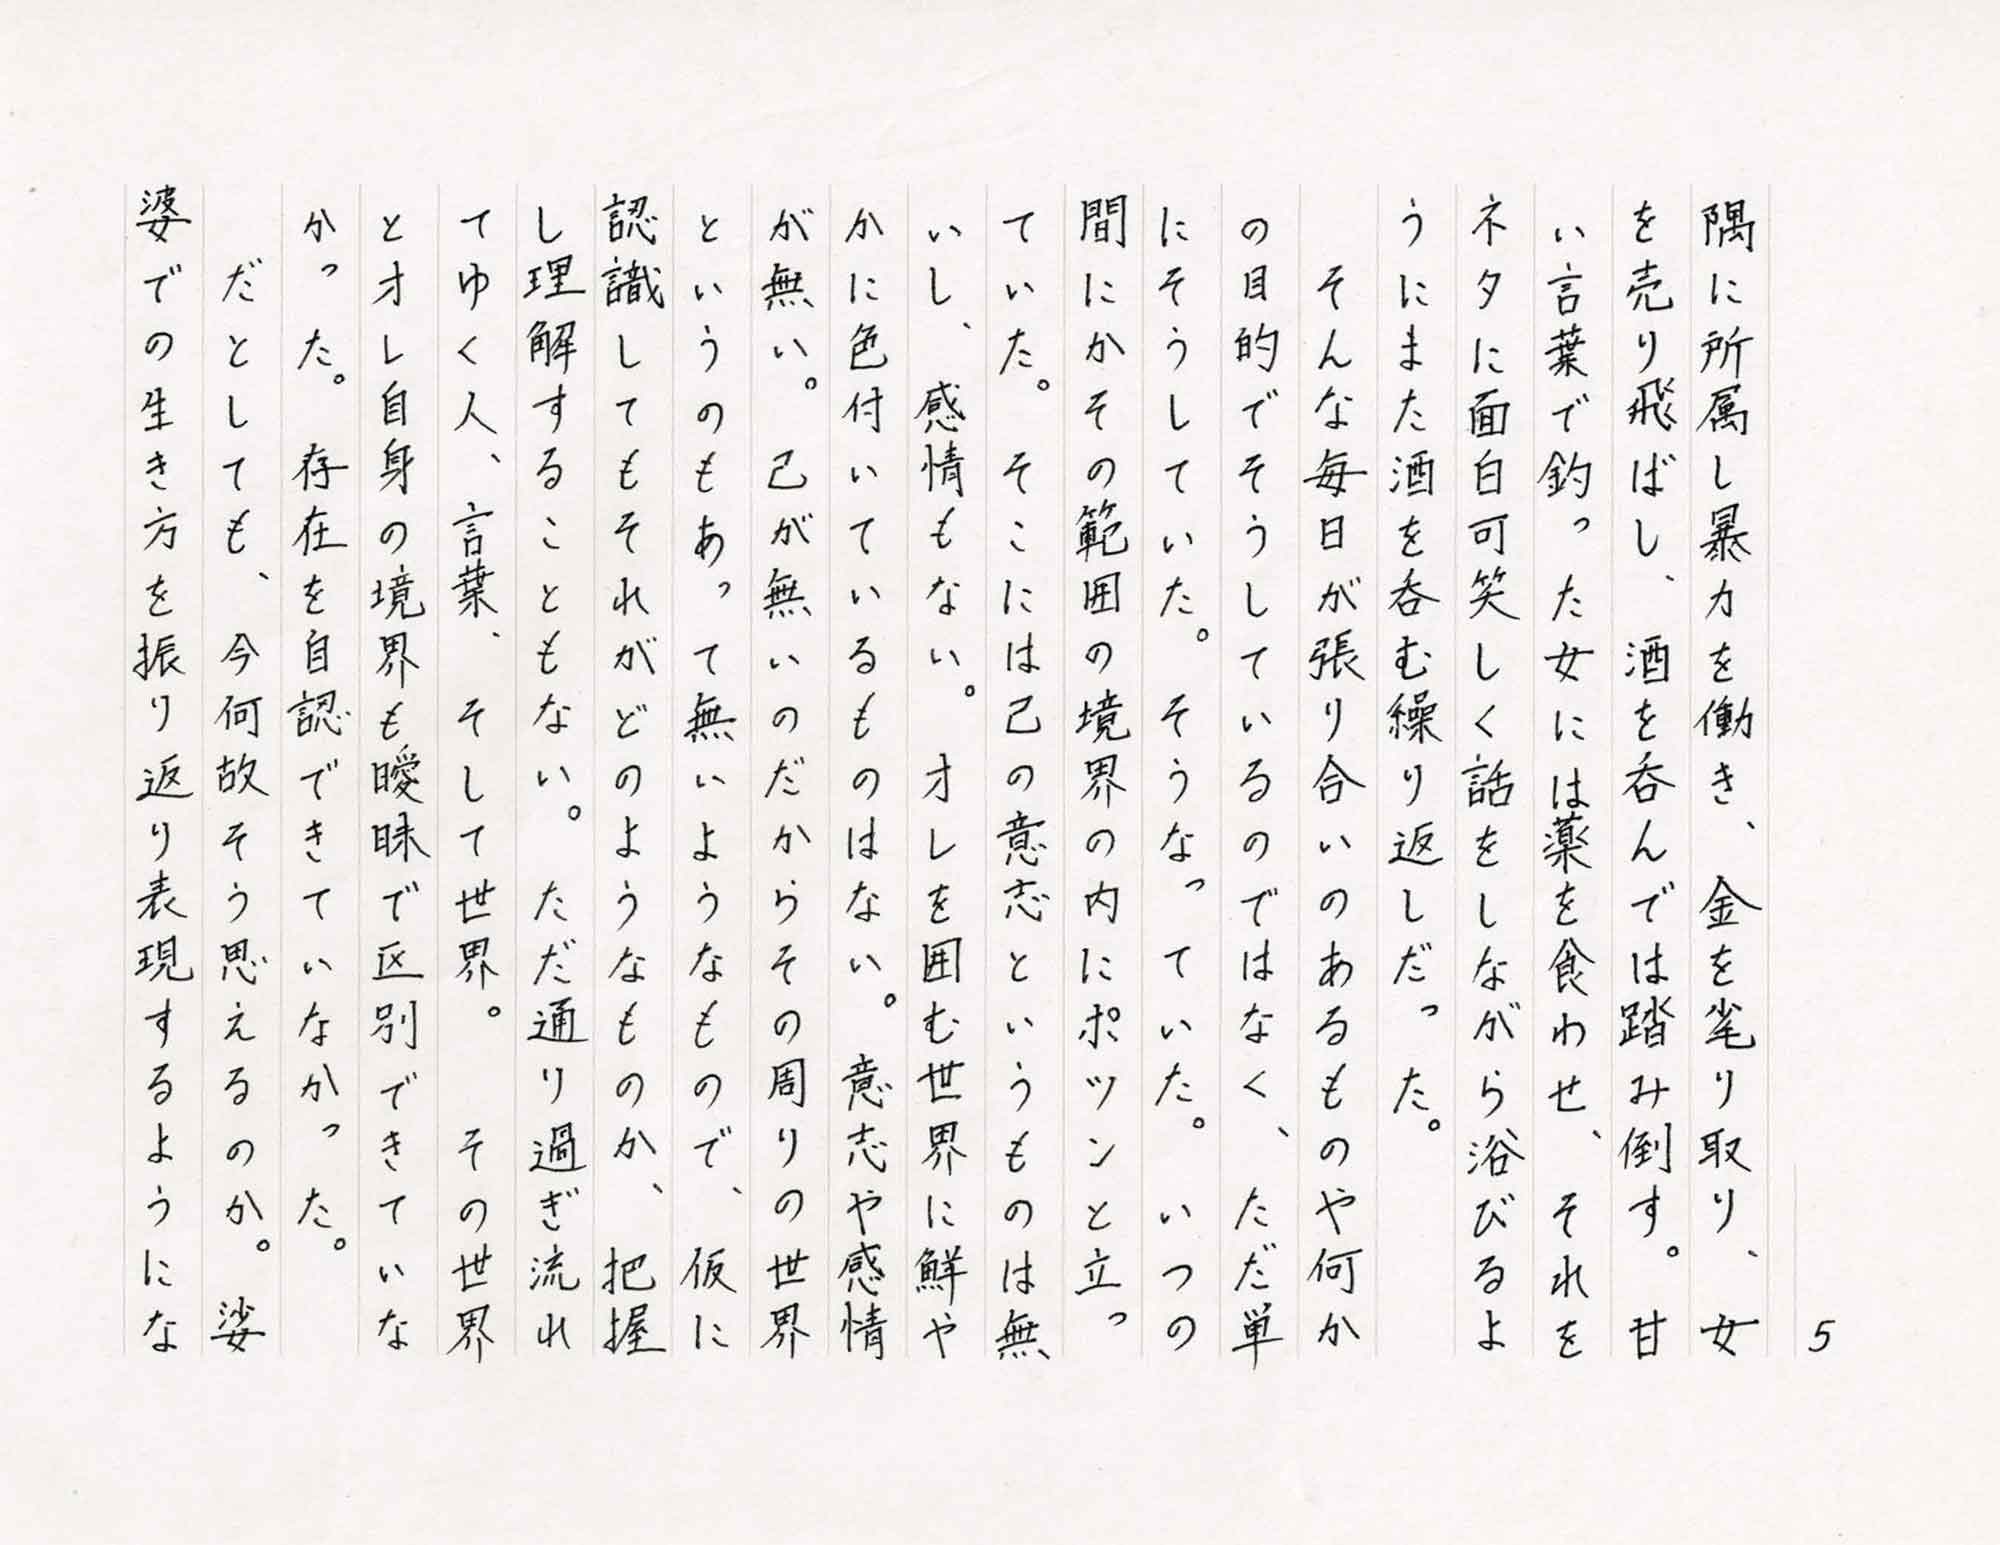 5
隅に所属し暴力を働き、金を毟り取り、女
を売り飛ばし、酒を呑んでは踏み倒す。甘
い言葉で釣った女には薬を食わせ、それを
ネタに面白可笑しく話をしながら浴びるよ
うにまた酒を呑む繰り返しだった。
そんな毎日が張り合いのあるものや何か
の目的でそうしているのではなく、ただ単
にそうしていた。そうなっていた。いつの
間にかその範囲の境界の内にポツンと立っ
ていた。そこには己の意志というものは無
いし、感情もない。オレを囲む世界に鮮や
かに色付いているものはない。意志や感情
が無い。己が無いのだからその周りの世界
というのもあって無いようなもので、仮に
認識してもそれがどのようなものか、把握
し理解することもない。ただ通り過ぎ流れ
てゆく人、言葉、そして世界。その世界
とオレ自身の境界も曖昧で区別できていな
かった。存在を自認できていなかった。
だとしても、今何故そう思えるのか。娑
婆での生き方を振り返り表現するようにな